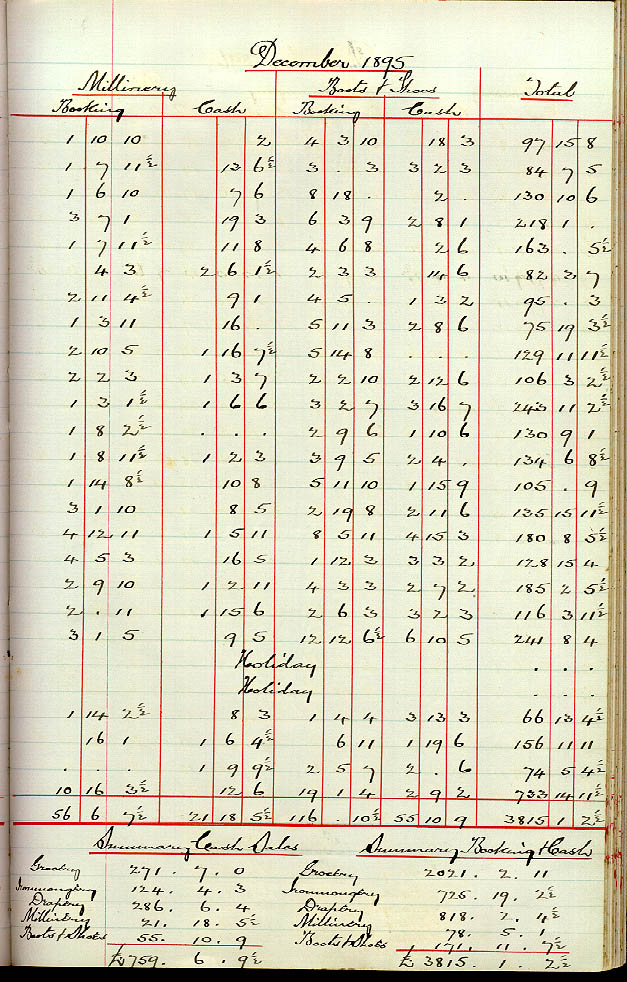 December 1895
Millinery Boots & Shoes Total
Booking Cash Booking Cash
1 10 10 2 4 3 10 18 3 97 15 8
1 7 11½ 13 6½ 3 . 3 3 2 3 84 7 5
1 6 10 7 6 8 18 . 2 . 130 10 6
3 7 1 19 3 6 3 9 2 8 1 218 1 .
1 7 11½ 11 8 4 6 8 2 6 163 . 5½
4 3 2 6 1½ 2 3 3 14 6 82 2 7
2 11 4½ 9 1 4 5 . 1 3 2 95 . 3
1 3 11 16 . 5 11 3 2 8 6 75 19 3½
2 10 5 1 16 7½ 5 14 8 . . . 129 11 11½
2 2 3 1 3 7 2 2 10 2 12 6 106 3 2½
1 3 1½ 1 6 6 3 2 7 3 16 7 243 11 2½
1 8 2½ . . . 2 9 6 1 10 6 130 9 1
1 8 11½ 1 2 3 3 9 5 2 4 . 134 6 8½
1 14 8½ 10 8 5 11 10 1 15 9 105 . 9
3 1 10 8 5 2 19 8 2 11 6 135 15 11½
4 12 11 1 5 11 8 5 11 4 15 3 180 8 5½
4 5 3 16 5 1 12 3 3 3 2 128 15 4
2 9 10 1 2 11 4 3 3 2 7 2 185 2 5½
2 . 11 1 15 6 2 6 3 3 2 3 116 3 11½
3 1 5 9 5 12 12 6½ 6 10 5 241 8 4
Holiday . . .
Holiday . . .
1 14 2½ 8 3 1 4 4 3 13 3 66 13 4½
16 1 1 6 4½ 6 11 1 19 6 156 11 11
. . . 1 9 9½ 2 5 7 2 . 6 74 5 4½
10 16 3½ 12 6 19 1 4 2 9 2 733 14 11½
56 6 7½ 21 18 5½ 116 . 10½ 55 10 9 3815 1 2½
Summary Cash Sales Summary Booking & Cash
Grocery 271 . 7 . 0 Grocery 2021 . 2 . 11
Ironmongery 124 . 4 . 3 Ironmongery 725 . 19 . 2½
Drapery 286 . 6 . 4 Drapery 818 . 2 . 4½
Millinery 21 . 18 . 5½ Millinery 78 . 5 . 1
Boots & Shoes 55 . 10 . 9 Boots & Shoes 171 . 11 . 7½
£759 . 6 . 9½ £ 3815 . 1 . 2½